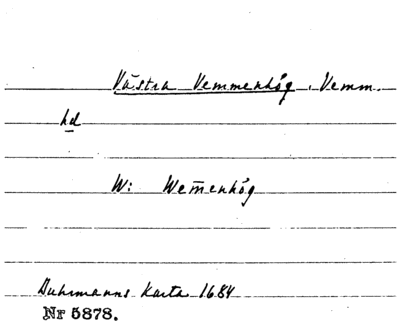 Västra Vemmenhög. Vemm.
hd
W: Wem̅enhög
Buhrmanns Karta 1684
Nr 5878.